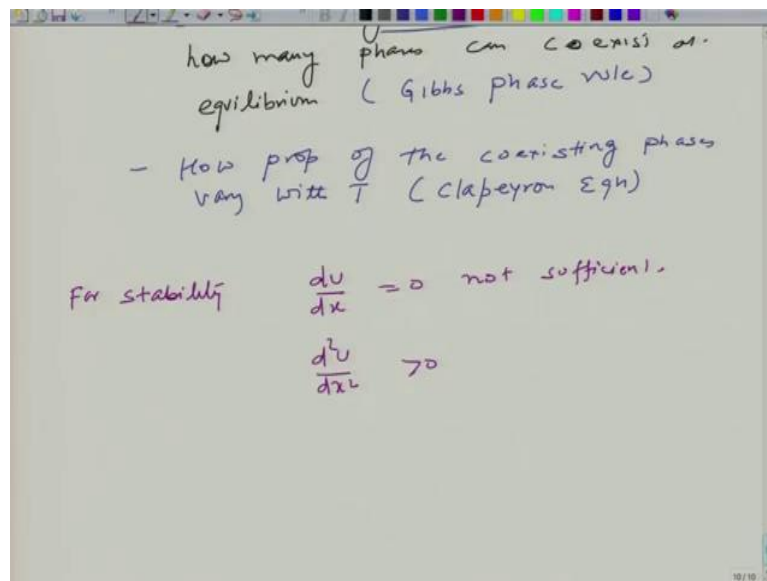 how many phases can coexist at
equilibrium (Gibbs phase rule)
- How prop of the coexisting phases
vary with T (Clapeyron Eqn)
For stability du/dx = 0 not sufficient.
d²u/dx² >0
10/10